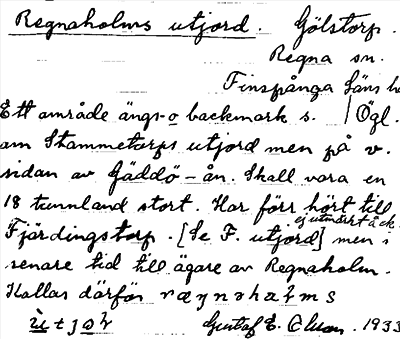 Regnaholms utjord. Gölstorp.
Regna sn.
Finspånga läns h
Ett område ängs- o backmark s. | Ögl.
om Stammetorps utjord men på v.
sidan av Gäddö-ån. Skall vara en
18 tunnland stort. Har förr hört till
ej utmärkt å ek.
Fjärdingstorp. [Se F. utjord] men i
senare tid till ägare av Regnaholm.
Kallas därför
Gustaf E. Olsson. 1933